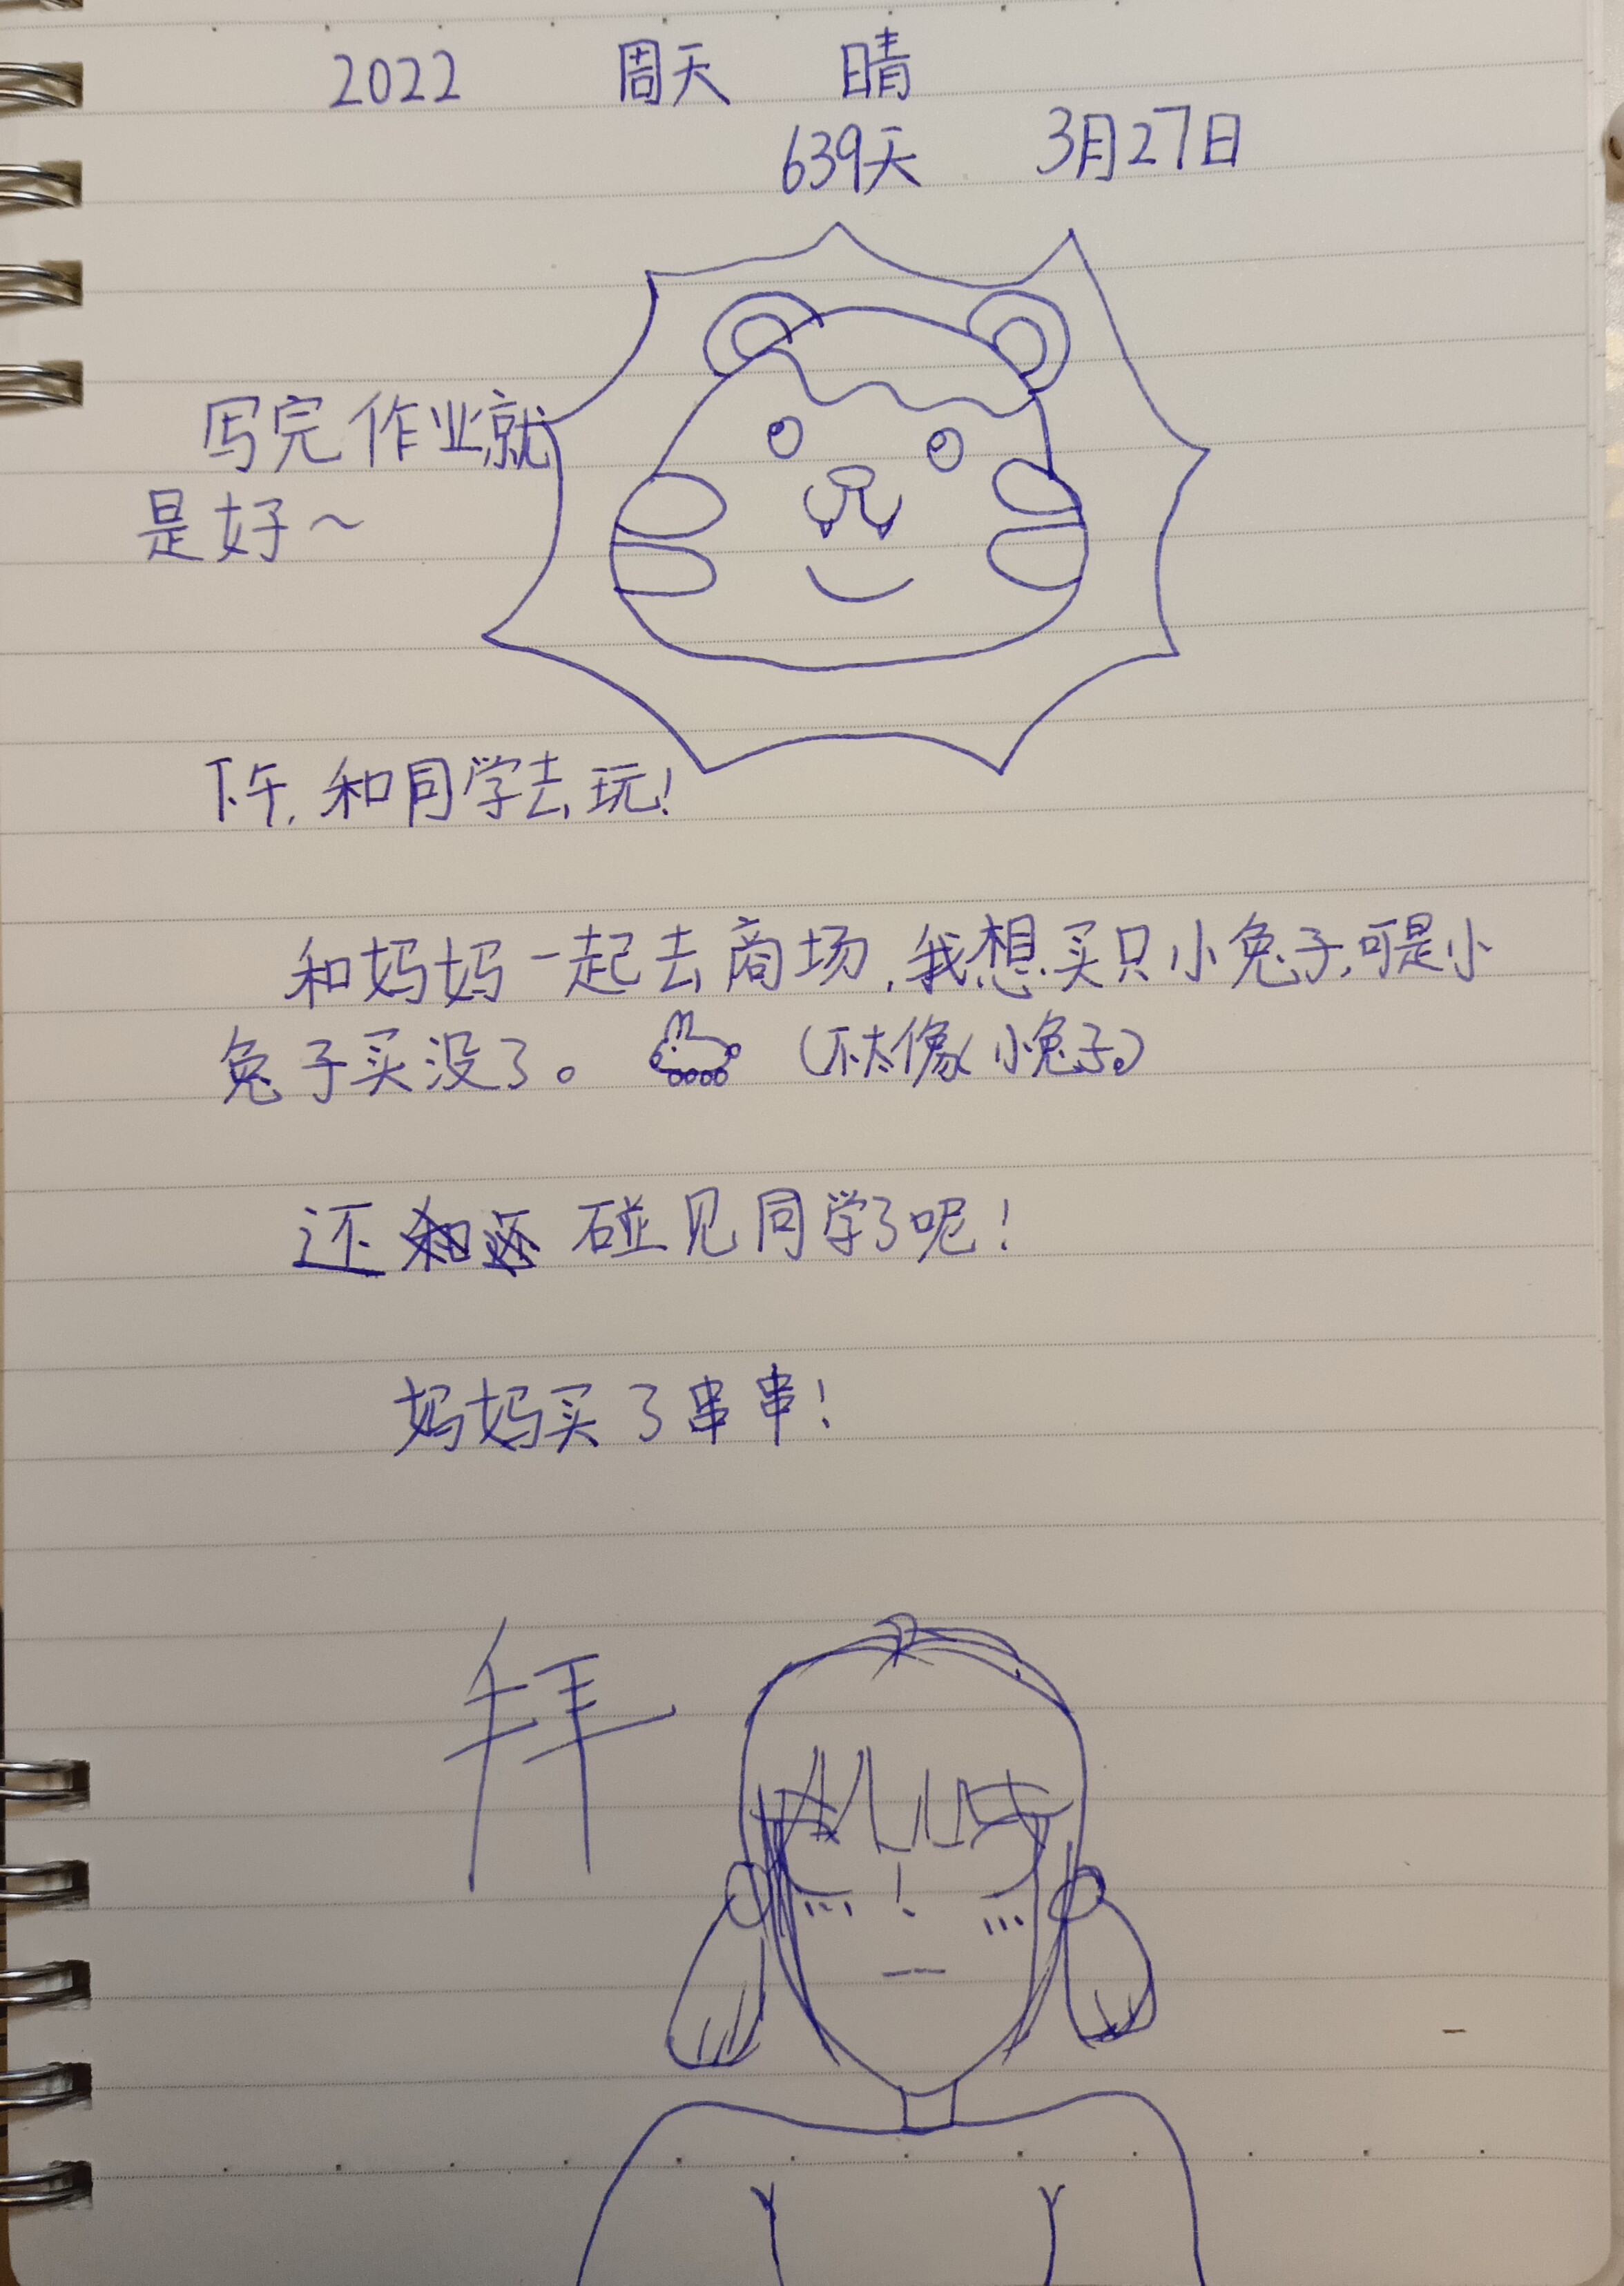 2022 周天 晴
639天 3月27日
写完作业就
是好～
下午,和同学去玩!
和妈妈一起去商场,我想买只小兔子,可是小
兔子买没了。 (不太像小兔子。)
还 碰见同学了呢!
妈妈买了串串!
拜